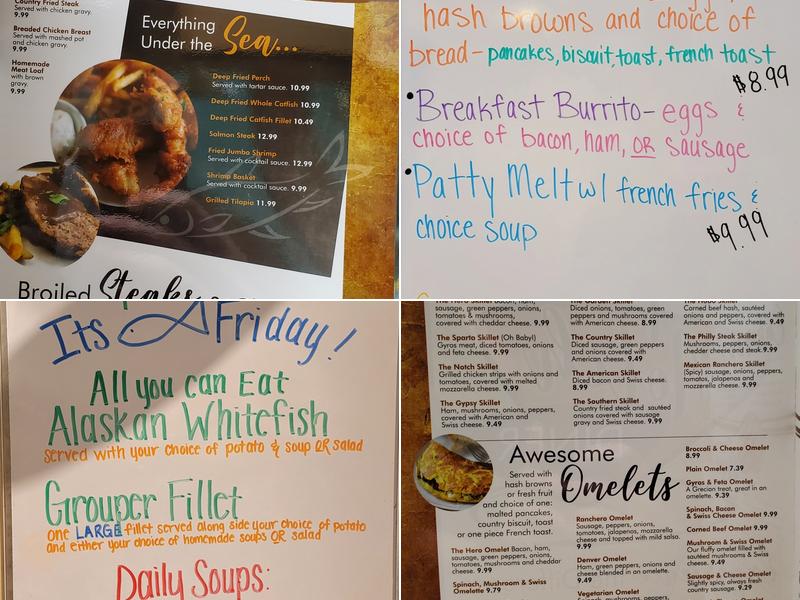 Country Fried Steak
Served with chicken gravy.
9.99
Breaded Chicken Breast
Served with mashed pot
and chicken gravy.
9.99
Homemade
Meat Loaf
with brown
gravy.
9.99
Everything
Under the Sea...
Deep Fried Perch
Served with tartar sauce. 10.99
Deep Fried Whole Catfish 10.99
Deep Fried Catfish Fillet 10.49
Salmon Steak 12.99
Fried Jumbo Shrimp
Served with cocktail sauce. 12.99
Shrimp Basket
Served with cocktail sauce. 9.99
Grilled Tilapia 11.99
Broiled Steaks
hash browns and choice of
bread - pancakes, biscuit, toast, french toast
$8.99
• Breakfast Burrito - eggs &
choice of bacon, ham, OR sausage
• Patty Melt w/ french fries &
choice soup
$9.99
Its Friday!
All you can Eat
Alaskan Whitefish
served with your choice of potato & soup OR salad
Grouper Fillet
one LARGE fillet served along side your choice of potato
and either your choice of homemade soups OR salad
Daily Soups:
The Hero Skillet Bacon, ham,
sausage, green peppers, onions,
tomatoes & mushrooms,
covered with cheddar cheese. 9.99
The Sparta Skillet (Oh Baby!)
Gyros meat, diced tomatoes, onions
and feta cheese. 9.99
The Notch Skillet
Grilled chicken strips with onions and
tomatoes, covered with melted
mozzarella cheese. 9.99
The Gypsy Skillet
Ham, mushrooms, onions, peppers,
covered with American and
Swiss cheese. 9.49
The Garden Skillet
Diced onions, tomatoes, green
peppers and mushrooms covered
with American cheese. 8.99
The Country Skillet
Diced sausage, green peppers
and onions covered with
American cheese. 9.49
The American Skillet
Diced bacon and Swiss cheese.
8.99
The Southern Skillet
Country fried steak and sautéed
onions covered with sausage
gravy and Swiss cheese. 9.99
The Hobo Skillet
Corned beef hash, sautéed
onions and peppers, covered with
American and Swiss cheese. 9.49
The Philly Steak Skillet
Mushrooms, peppers, onions,
cheddar cheese and steak. 9.99
Mexican Ranchero Skillet
(Spicy) sausage, onions, peppers,
tomatoes, jalapenos and
mozzarella cheese. 9.99
Awesome
Omelets
Served with
hash browns
or fresh fruit
and choice of one:
malted pancakes,
country biscuit, toast
or one piece French toast.
The Hero Omelet Bacon, ham,
sausage, green peppers, onions,
tomatoes, mushrooms and cheddar
cheese. 9.99
Spinach, Mushroom & Swiss
Omelette 9.79
Ranchero Omelet
Sausage, peppers, onions,
tomatoes, jalapenos, mozzarella
cheese and topped with mild salsa.
9.99
Denver Omelet
Ham, green peppers, onions and
cheese blended in an omelette.
9.49
Vegetarian Omelet
Broccoli & Cheese Omelet
8.99
Plain Omelet 7.39
Gyros & Feta Omelet
A Grecian treat, great in an
omelette. 9.39
Spinach, Bacon
& Swiss Cheese Omelet 9.99
Corned Beef Omelet 9.99
Mushroom & Swiss Omelet
Our fluffy omelet filled with
sautéed mushrooms & Swiss
cheese. 9.49
Sausage & Cheese Omelet
Slightly spicy, always fresh
country sausage. 9.29